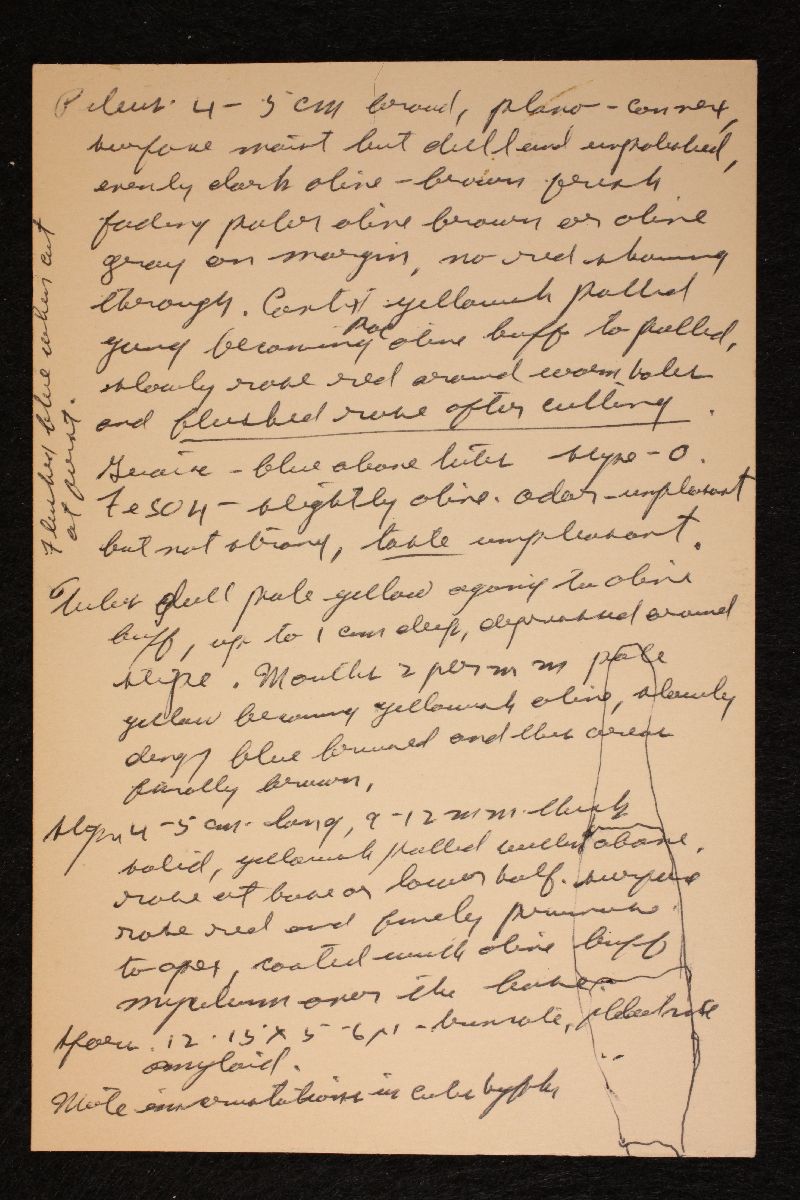 Pileus 4-5 cm broad, plano-convex,
surface moist but dull and unpolished,
evenly dark olive-brown fresh
fading paler olive brown or olive
gray on margin, no red showing
through. yellowish pallid
young becoming pale olive buff to pallid,
slowly rose red around worm holes
and flushed rose after cutting.
Guaiac - blue above tubes stipe - 0.
FeSO4 - slightly olive. odor unpleasant
but not strong, taste unpleasant.
Tubes dull pale yellow aging to olive
buff, up to 1 cm deep, depressed around
stipe. Mouths 2 per mm pale
yellow becoming yellowish olive, slowly
dingy blue bruised and then areas
finally brown.
Stipe 4-5 cm long, 9-12 mm thick
solid, yellowish pallid within above.
rose at base or lower half. surface
rose red and finely pruinose
to apex, coated with olive buff
mycelium over the base.
Spores 12-15 x 5-6 µ -
amyloid.
Note incrustations in cutis hyphae
flushed blue when cut
at first.